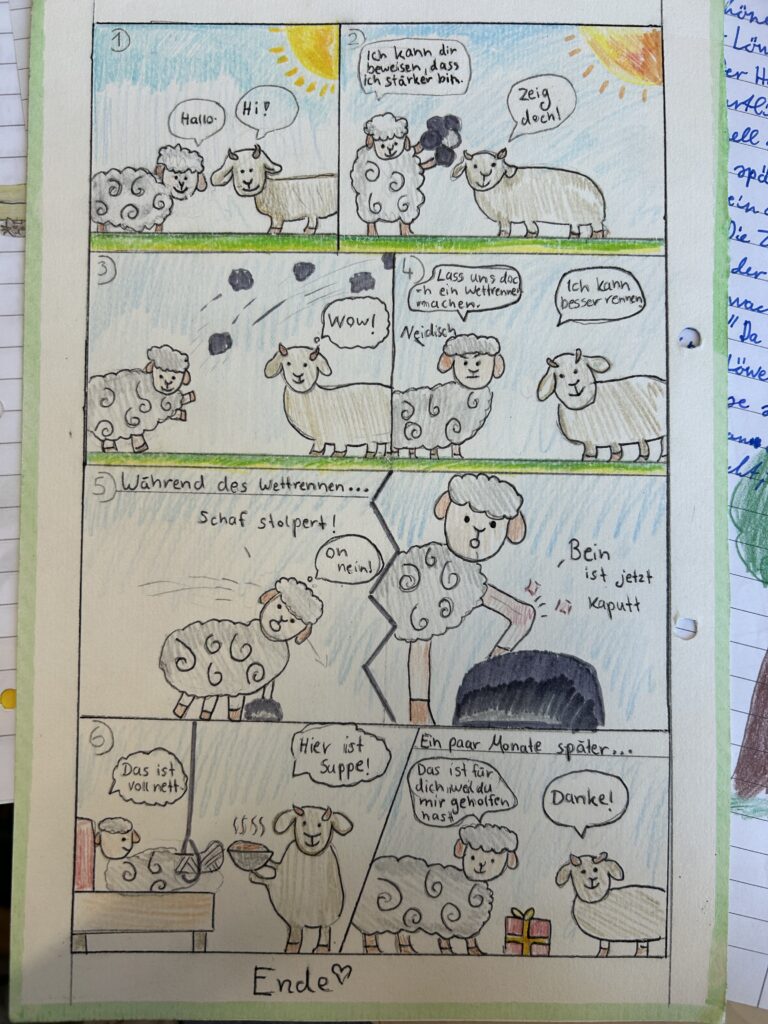 1
Hallo.
Hi!
2
Ich kann dir
beweisen, dass
ich stärker bin.
Zeig
doch!
3
Wow!
4
Lass uns doc
h ein Wettrennen
machen.
Neidisch
Ich kann
besser rennen
5
Während des Wettrennen...
Schaf stolpert!
oh
nein!
Bein
ist jetzt
kaputt
6
Das ist
voll nett
Hier ist
Suppe!
Ein paar Monate später...
Das ist für
dich, weil du
mir geholfen
hast
Danke!
Ende♡